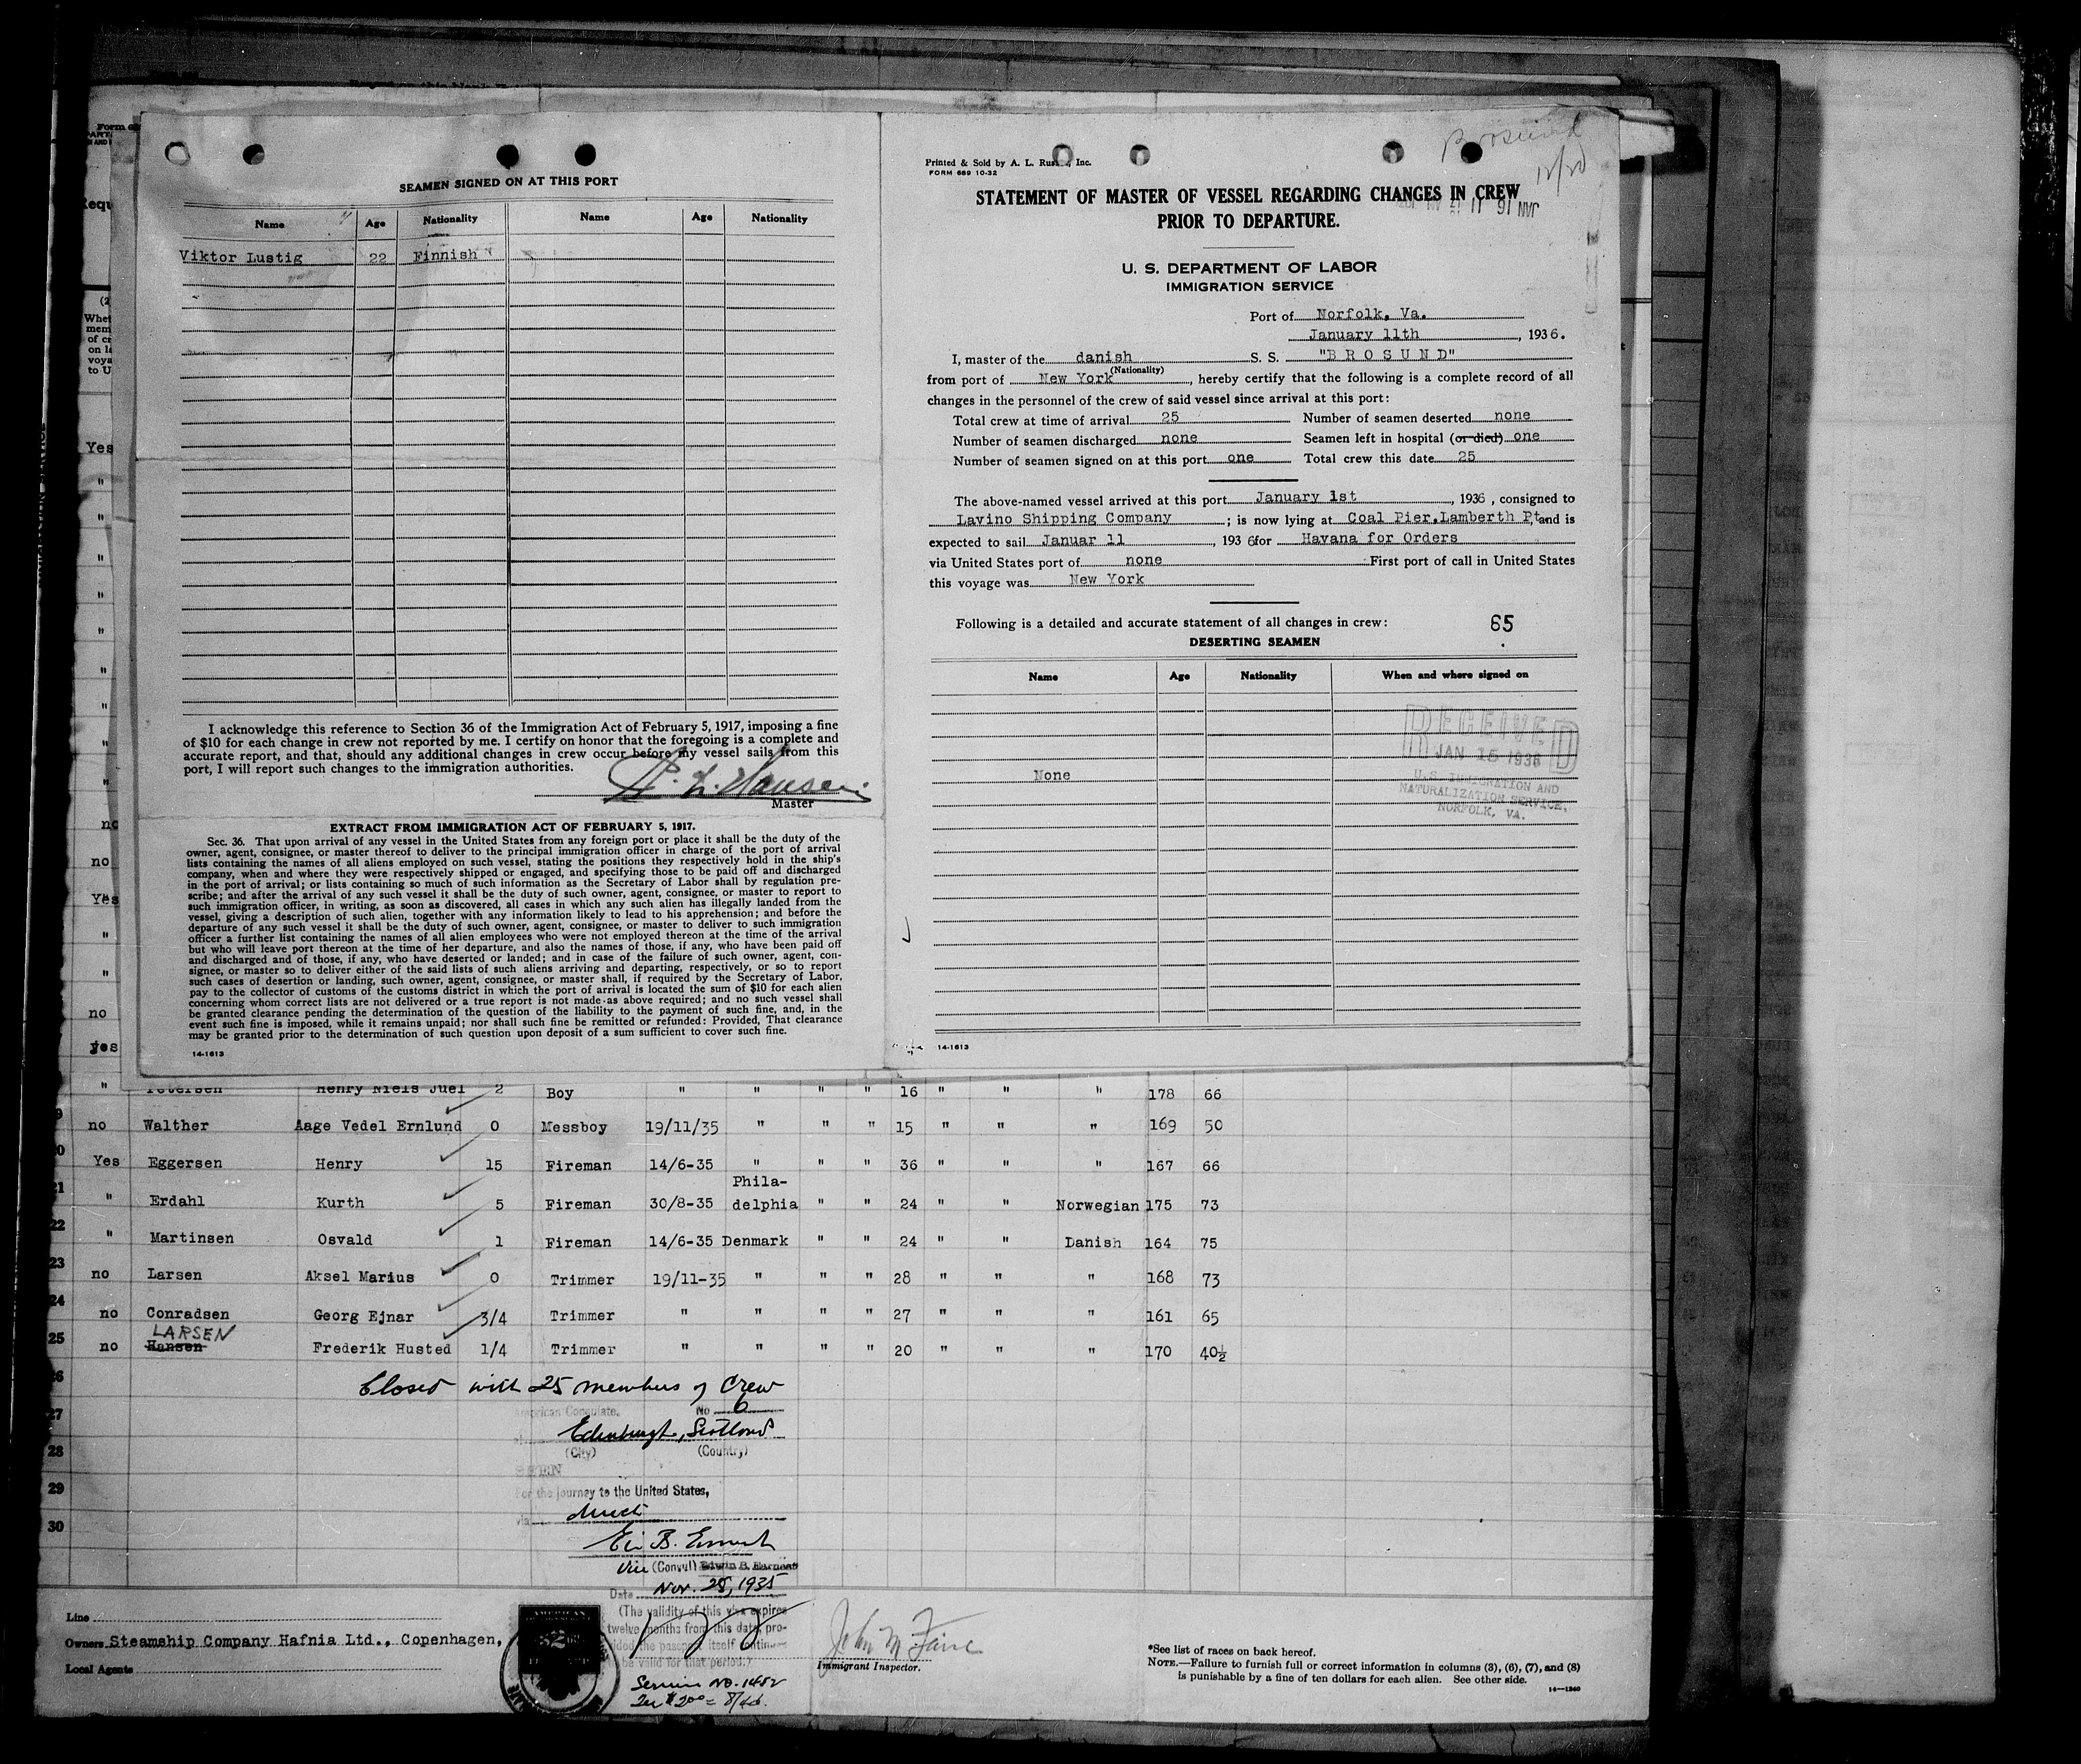 SEAMEN SIGNED ON AT THIS PORT
Name Age Nationality Name Age Nationality
Viktor Lustig 22 Finnish
I acknowledge this reference to Section 36 of the Immigration Act of February 5, 1917, imposing a fine
of $10 for each change in crew not reported by me. I certify on honor that the foregoing is a complete and
accurate report, and that, should any additional changes in crew occur before my vessel sails from this
port, I will report such changes to the immigration authorities.
Hansen
Master
EXTRACT FROM IMMIGRATION ACT OF FEBRUARY 5, 1917.
Sec. 36. That upon arrival of any vessel in the United States from any foreign port or place it shall be the duty of the
owner, agent, consignee, or master thereof to deliver to the principal immigration officer in charge of the port of arrival
lists containing the names of all aliens employed on such vessel, stating the positions they respectively hold in the ship's
company, when and where they were respectively shipped or engaged, and specifying those to be paid off and discharged
in the port of arrival; or lists containing so much of such information as the Secretary of Labor shall by regulation pre-
scribe; and after the arrival of any such vessel it shall be the duty of such owner, agent, consignee, or master to report to
such immigration officer, in writing, as soon as discovered, all cases in which any such alien has illegally landed from the
vessel, giving a description of such alien, together with any information likely to lead to his apprehension; and before the
departure of any such vessel it shall be the duty of such owner, agent, consignee, or master to deliver to such immigration
officer a further list containing the names of all alien employees who were not employed thereon at the time of the arrival
but who will leave port thereon at the time of her departure, and also the names of those, if any, who have been paid off
and discharged and of those, if any, who have deserted or landed; and in case of the failure of such owner, agent, con-
signee, or master so to deliver either of the said lists of such aliens arriving and departing, respectively, or so to report
such cases of desertion or landing, such owner, agent, consignee, or master shall, if required by the Secretary of Labor,
pay to the collector of customs of the customs district in which the port of arrival is located the sum of $10 for each alien
concerning whom correct lists are not delivered or a true report is not made as above required; and no such vessel shall
be granted clearance pending the determination of the question of the liability to the payment of such fine, and, in the
event such fine is imposed, while it remains unpaid; nor shall such fine be remitted or refunded: Provided, That clearance
may be granted prior to the determination of such question upon deposit of a sum sufficient to cover such fine.
14-1613
Brosund
12/20
Printed & Sold by A. L. Inc.
FORM 689 10-32
STATEMENT OF MASTER OF VESSEL REGARDING CHANGES IN CREW
PRIOR TO DEPARTURE.
JAN 16 11
U. S. DEPARTMENT OF LABOR
IMMIGRATION SERVICE
Port of Norfolk, Va.
January 11th, 1936.
I, master of the danish S. S. "B R O S U N D"
(Nationality)
from port of New York, hereby certify that the following is a complete record of all
changes in the personnel of the crew of said vessel since arrival at this port:
Total crew at time of arrival 25 Number of seamen deserted none
Number of seamen discharged none Seamen left in hospital (or died) one
Number of seamen signed on at this port one Total crew this date 25
The above-named vessel arrived at this port January 1st, 1936, consigned to
Lavino Shipping Company; is now lying at Coal Pier, Lamberth Pt, and is
expected to sail Januar 11, 1936 for Havana for Orders
via United States port of none First port of call in United States
this voyage was New York
Following is a detailed and accurate statement of all changes in crew: 65
DESERTING SEAMEN
Name Age Nationality When and where signed on
None
RECEIVED
JAN 15 1936
U.S. IMMIGRATION AND
NATURALIZATION SERVICE,
NORFOLK, VA.
14-1613
" Petersen Henry Niels Juel 2 Boy " " " " 16 " " " 178 66
no Walther Aage Vedel Ernlund 0 Messboy 19/11/35 " " " 15 " " " 169 50
Yes Eggersen Henry 15 Fireman 14/6-35 " " " 36 " " " 167 66
21 " Erdahl Kurth 5 Fireman 30/8-35 Phila-
delphia " " 24 " " Norwegian 175 73
22 " Martinsen Osvald 1 Fireman 14/6-35 Denmark " " 24 " " Danish 164 75
23 no Larsen Aksel Marius 0 Trimmer 19/11-35 " " " 28 " " " 168 73
24 no Conradsen Georg Ejnar 3/4 Trimmer " " " " 27 " " " 161 65
LARSEN
25 no Hansen Frederik Husted 1/4 Trimmer " " " " 20 " " " 170 40½
Closed with 25 members of Crew
American Consulate, No 6
27
Edinburgh, Scotland
28 (City) (Country)
SEEN
29 For the journey to the United States,
via direct
30
Vice (Consul) Edwin B. Earnest
Date Nov. 28, 1935
(The validity of this visa expires
twelve months from this date, pro-
vided the passport itself continues
to be valid for that period.)
Service No. 1452
Line
Owners Steamship Company Hafnia Ltd., Copenhagen,
Local Agents
AMERICAN
Immigrant Inspector.
*See list of races on back hereof.
NOTE.—Failure to furnish full or correct information in columns (3), (6), (7), and (8)
is punishable by a fine of ten dollars for each alien. See other side.
14—1240